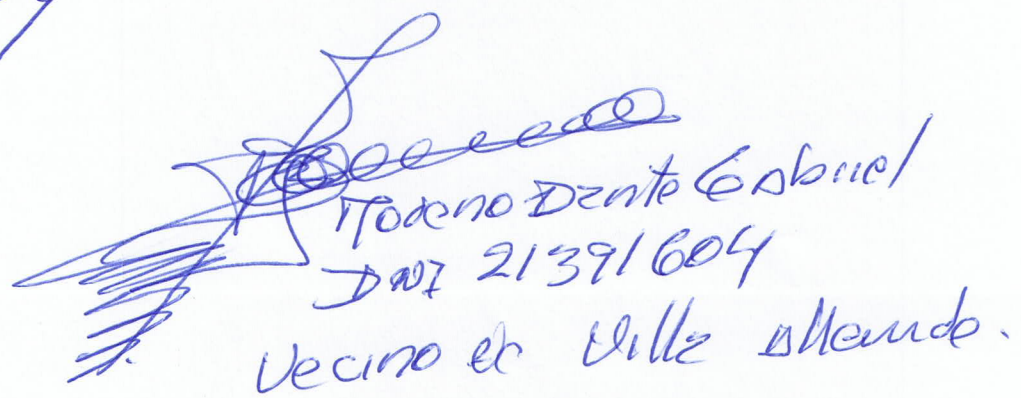 Moreno Dante Gabriel
DNI 21391604
Vecino de Villa Allende.